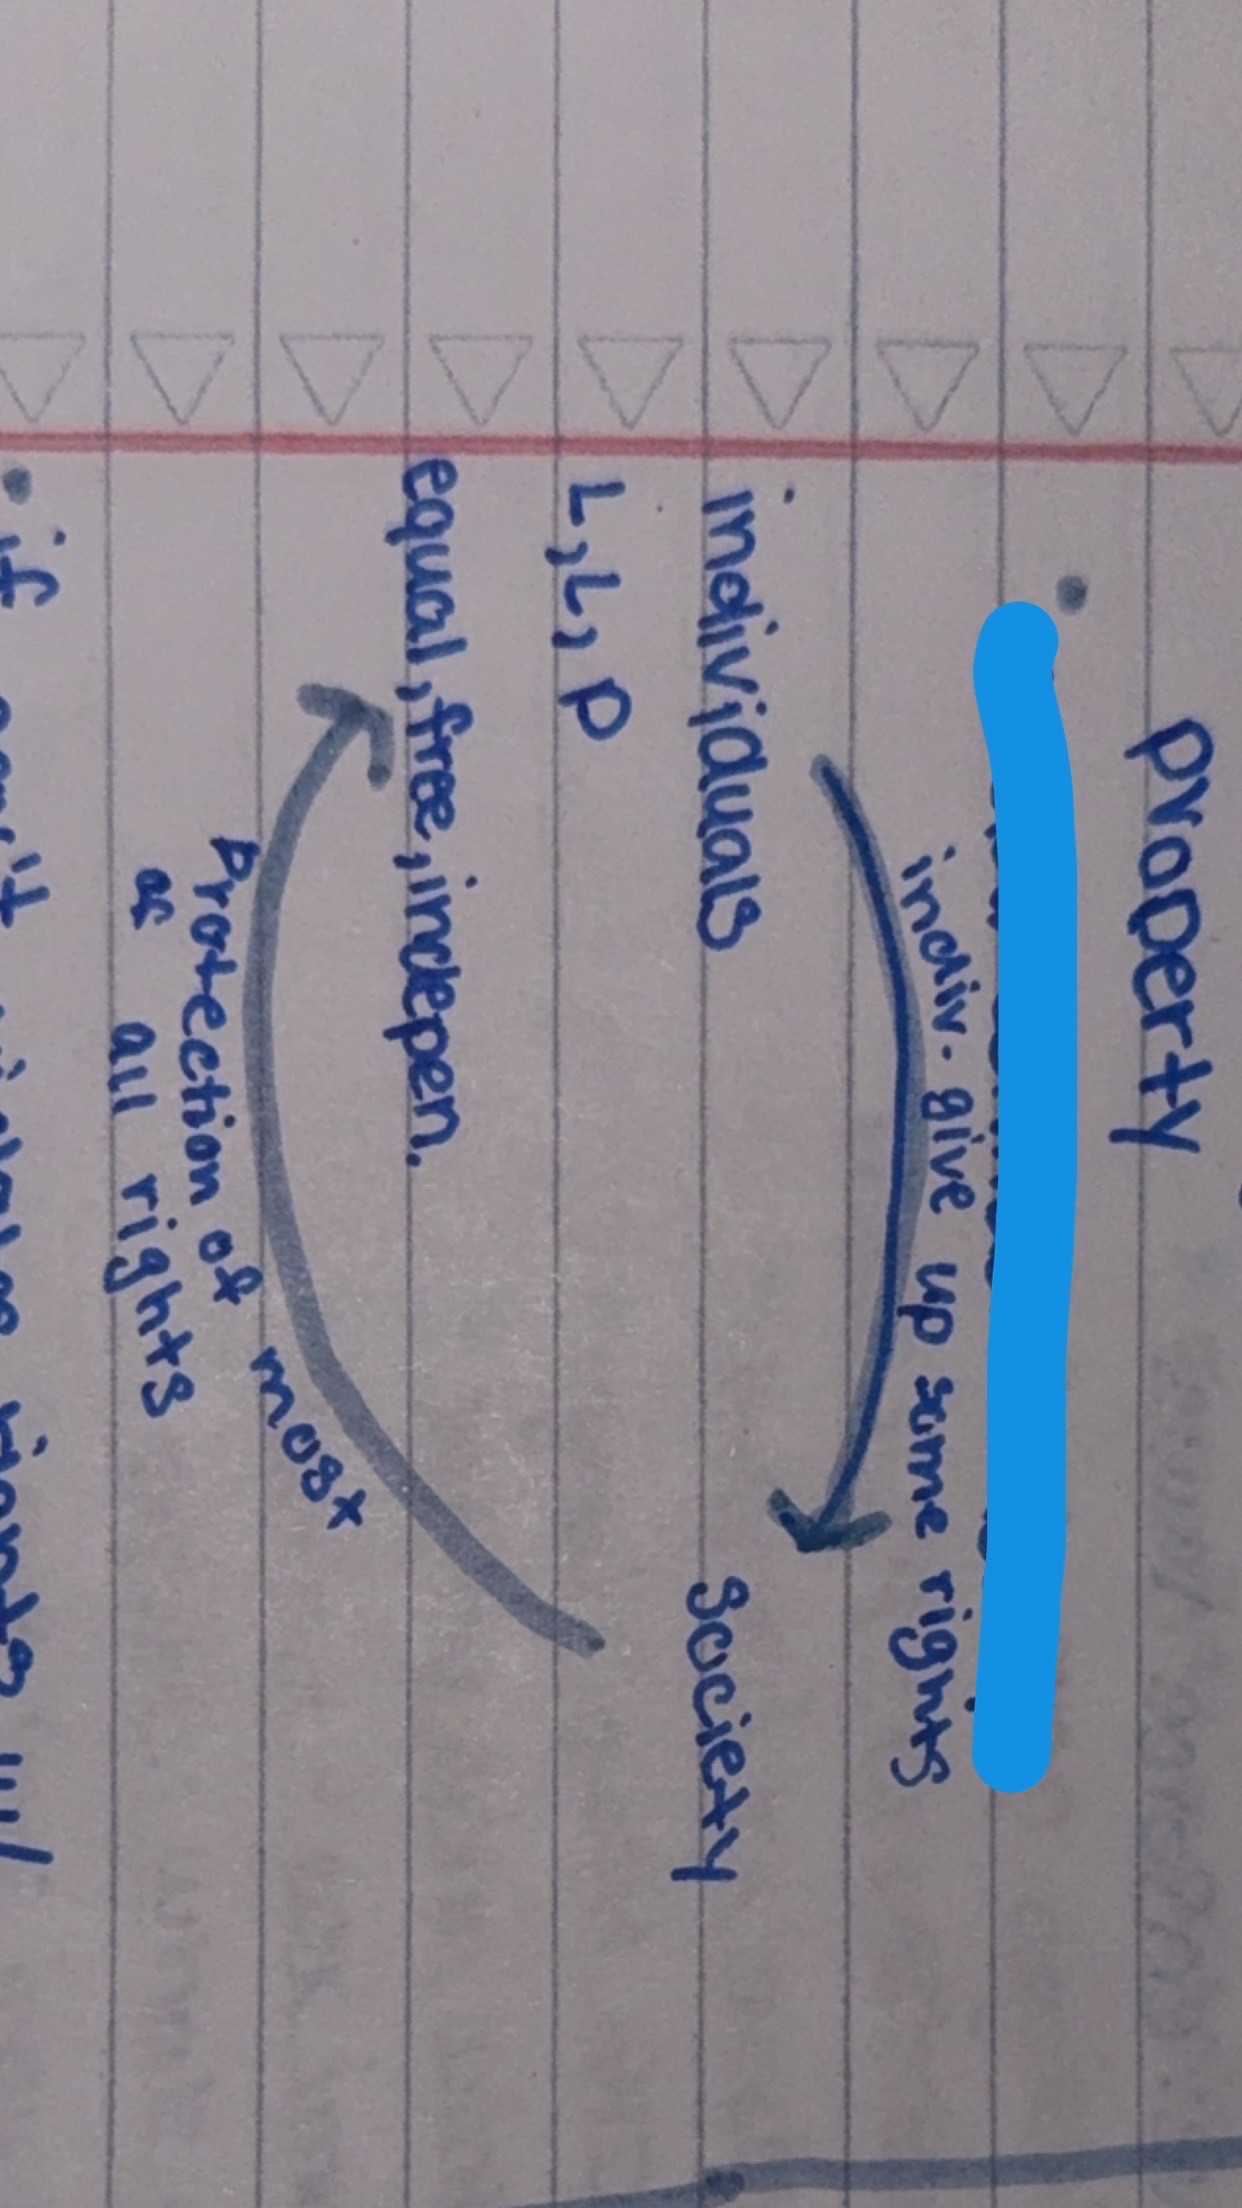 property
indiv. give up some rights
individuals
society
L, L, P
equal, free, indepen.
Protection of most
of all rights
• if